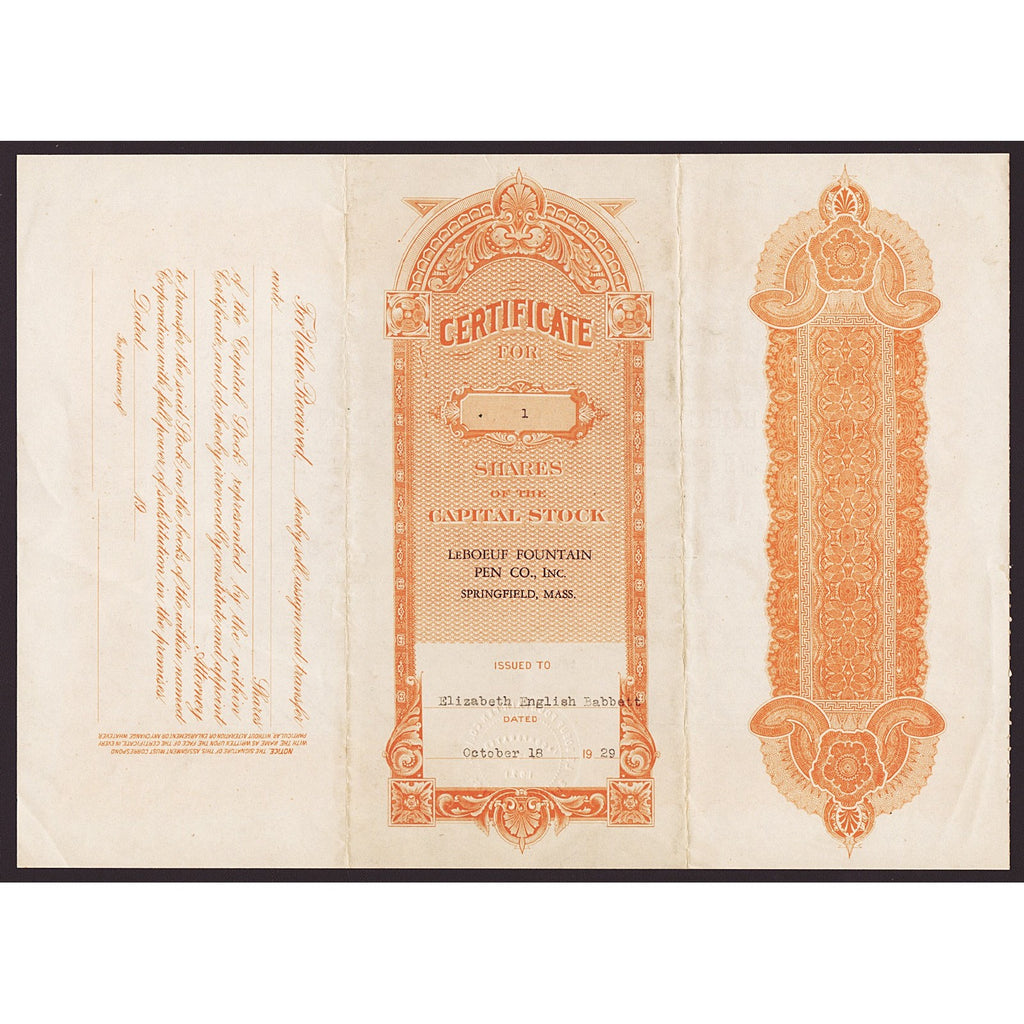 For Value Received, hereby sell, assign and transfer
unto
Shares
of the Capital Stock represented by the within
Certificate, and do hereby irrevocably constitute and appoint
Attorney
to transfer the said Stock on the books of the within named
Corporation with full power of substitution in the premises.
Dated 19
In presence of
NOTICE. THE SIGNATURE OF THIS ASSIGNMENT MUST CORRESPOND
WITH THE NAME AS WRITTEN UPON THE FACE OF THE CERTIFICATE IN EVERY
PARTICULAR WITHOUT ALTERATION OR ENLARGEMENT OR ANY CHANGE WHATEVER.
CERTIFICATE
FOR
1
SHARES
OF THE
CAPITAL STOCK
LEBOEUF FOUNTAIN
PEN CO., INC.
SPRINGFIELD, MASS.
ISSUED TO
Elizabeth English Babbett
DATED
October 18 1929